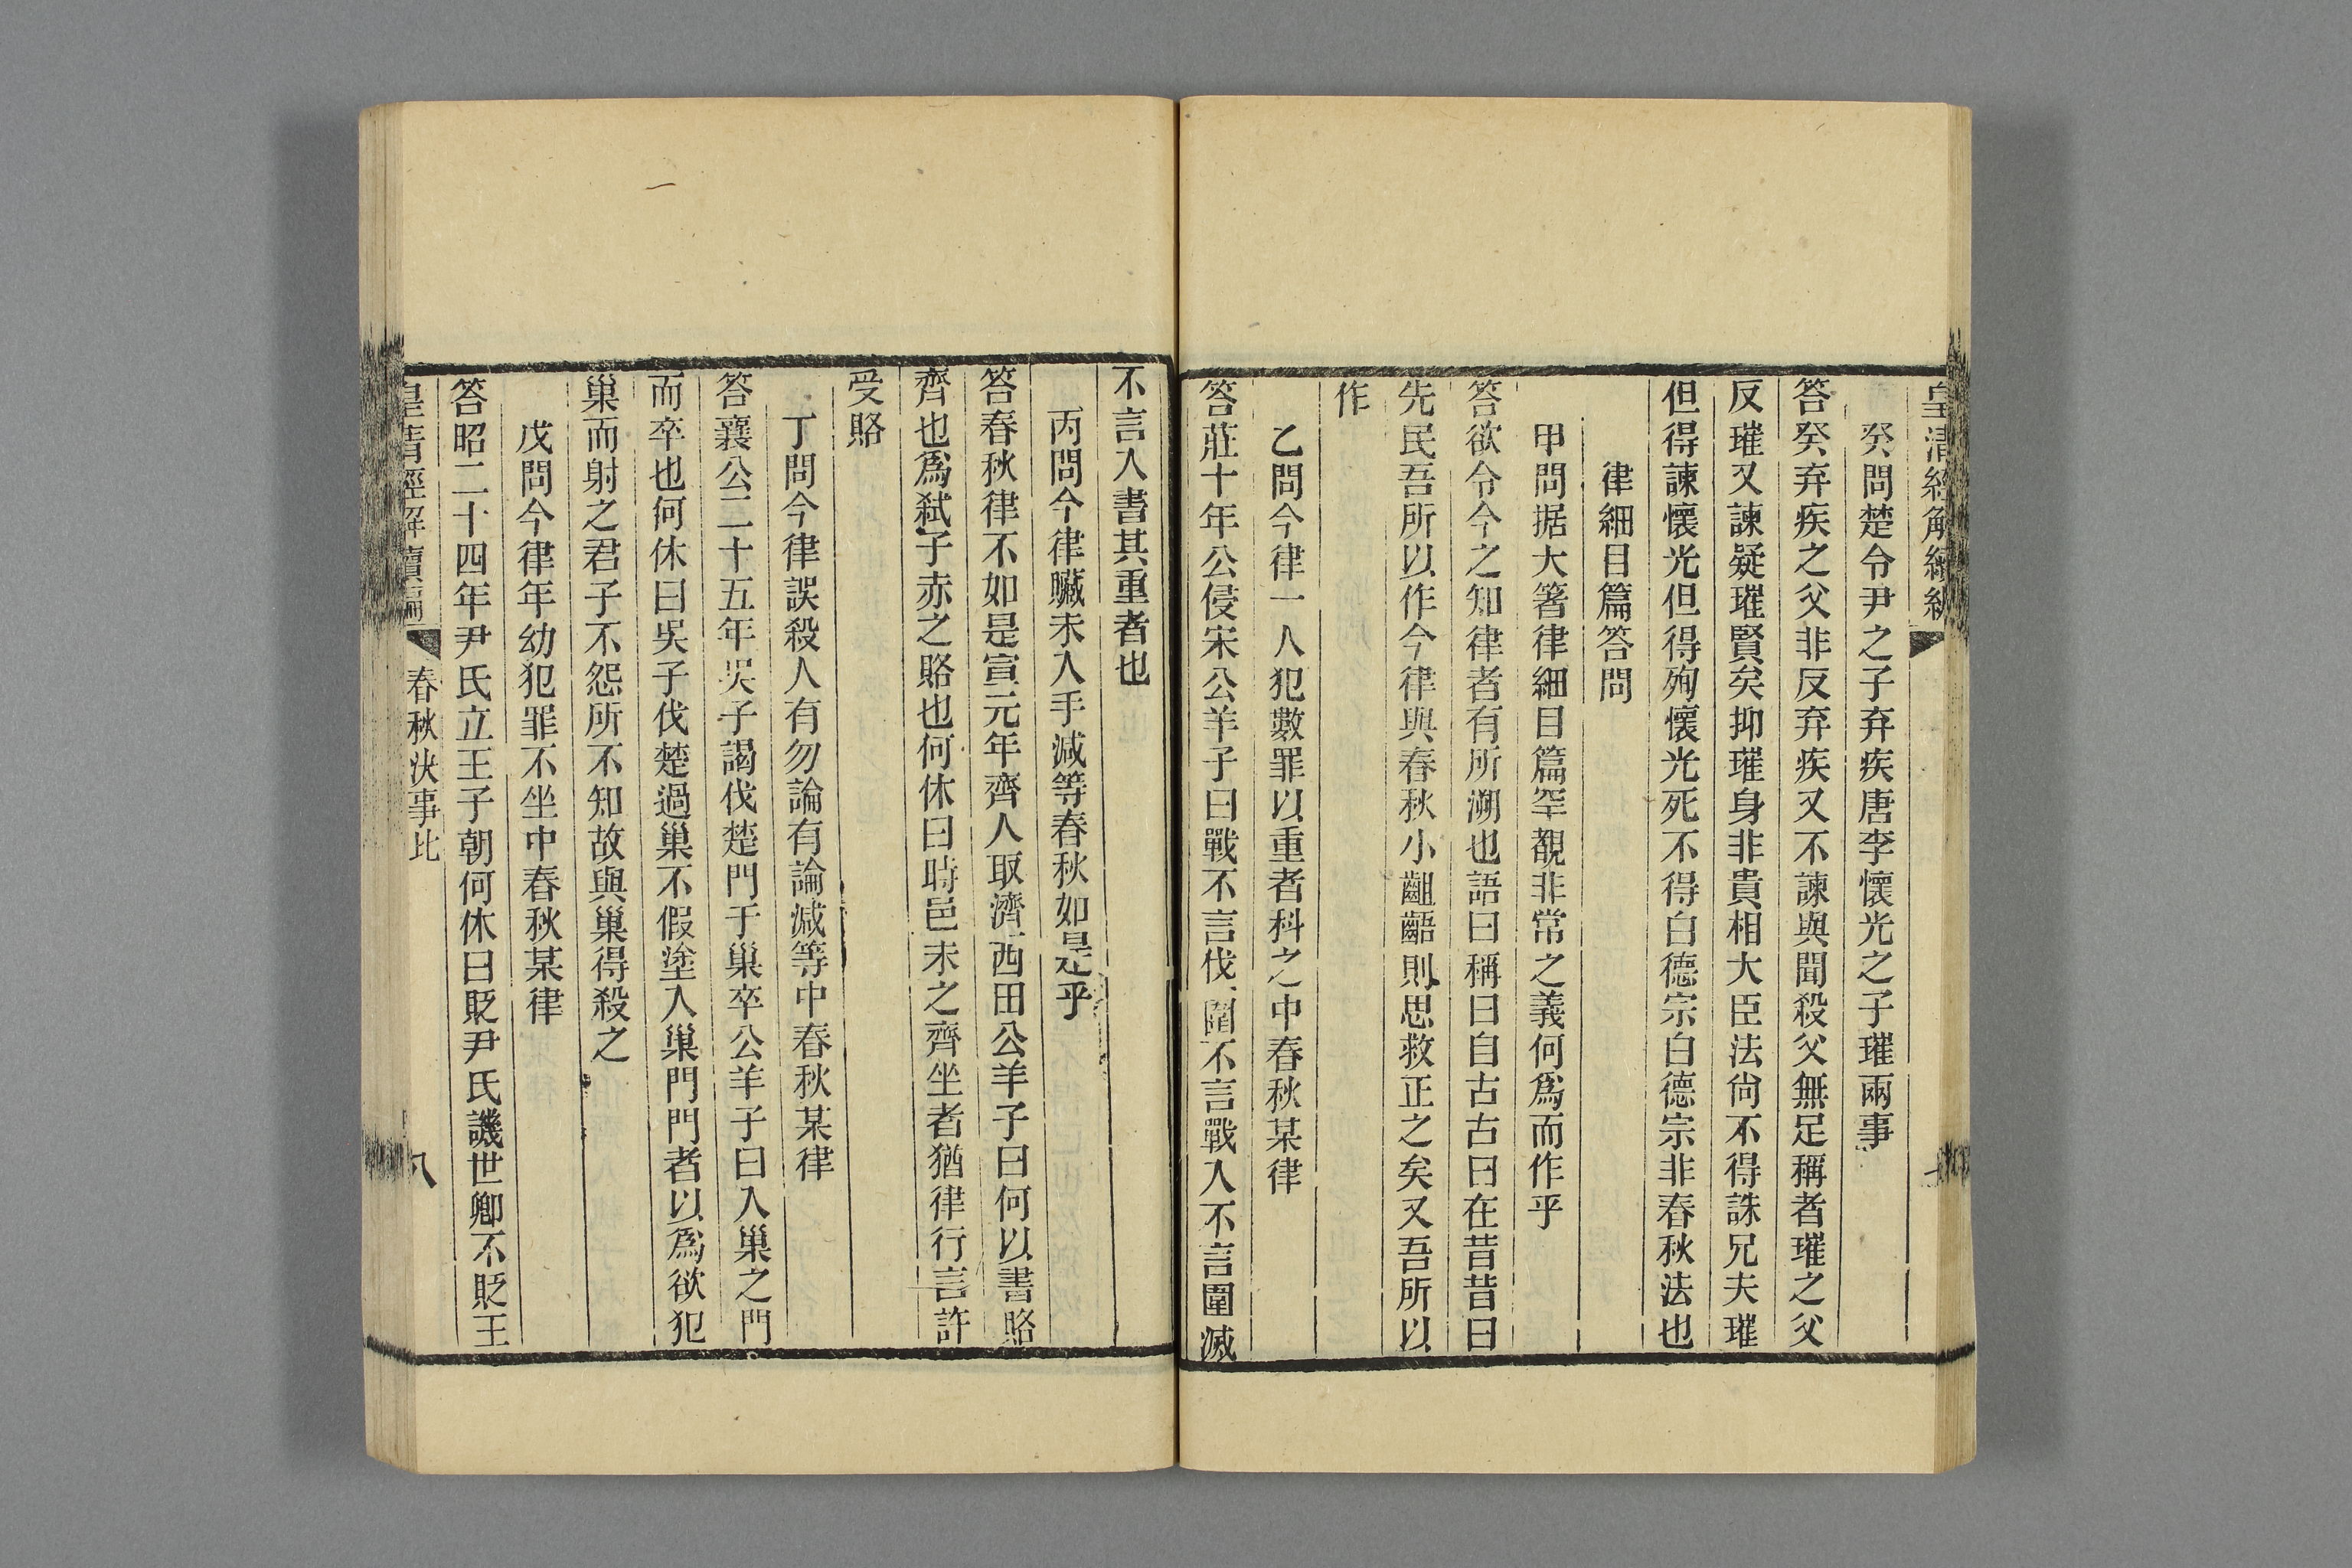 皇清經解續編
癸問楚令尹之子弃疾唐李懷光之子璀兩事
答癸弃疾之父非反弃疾又不諫與聞殺父無足稱者璀之父
反璀又諫疑璀賢矣抑璀身非貴相大臣法尙不得誅兄夫璀
但得諫懷光但得殉懷光死不得白德宗白德宗非春秋法也
律細目篇答問
甲問据大箸律細目篇罕覩非常之義何爲而作乎
答欲令今之知律者有所溯也語曰稱曰自古古曰在昔昔曰
先民吾所以作今律與春秋小齟齬則思救正之矣又吾所以
作
乙問今律一人犯數罪以重者科之中春秋某律
答莊十年公侵宋公羊子曰戰不言伐圍不言戰入不言圍滅
不言入書其重者也
丙問今律贓未入手減等春秋如是乎
答春秋律不如是宣元年齊人取濟西田公羊子曰何以書賂
齊也爲弑子赤之賂也何休曰時邑未之齊坐者猶律行言許
受賂
丁問今律誤殺人有勿論有論減等中春秋某律
答襄公二十五年吳子謁伐楚門于巢卒公羊子曰入巢之門
而卒也何休曰吳子伐楚過巢不假塗入巢門門者以爲欲犯
巢而射之君子不怨所不知故與巢得殺之
戊問今律年幼犯罪不坐中春秋某律
答昭二十四年尹氏立王子朝何休曰貶尹氏譏世卿不貶王
皇清經解續編 春秋決事比 八